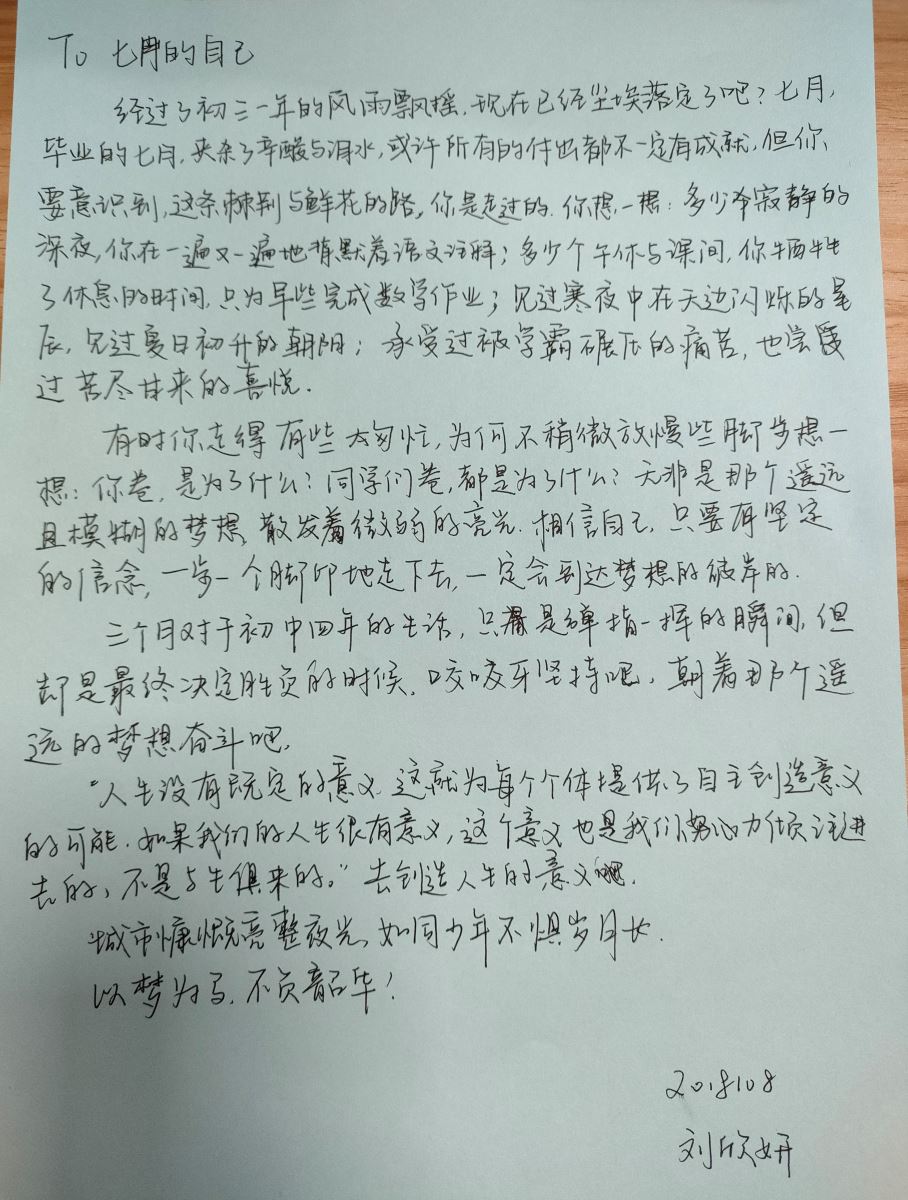 To 七月的自己
经过了初三一年的风雨飘摇,现在已经尘埃落定了吧?七月,
毕业的七月,夹杂了辛酸与泪水,或许所有的付出都不一定有成就,但你
要意识到,这条荆棘与鲜花的路,你是走过的.你想一想:多少个寂静的
深夜,你在一遍又一遍地背默着语文注释;多少个午休与课间,你牺牲
了休息的时间,只为早些完成数学作业;见过寒夜中在天边闪烁的星
辰,见过夏日初升的朝阳;承受过被学霸碾压的痛苦,也尝受
过苦尽甘来的喜悦.
有时你走得有些太匆忙,为何不稍微放慢些脚步想一
想:你卷,是为了什么?同学们卷,都是为了什么?无非是那个遥远
且模糊的梦想,散发着微弱的亮光.相信自己,只要有坚定
的信念,一步一个脚印地走下去,一定会到达梦想的彼岸的.
三个月对于初中四年的生活,只是弹指一挥的瞬间,但
却是最终决定胜负的时候.咬咬牙坚持吧,朝着那个遥
远的梦想奋斗吧.
"人生没有既定的意义.这就为每个个体提供了自主创造意义
的可能.如果我们的人生很有意义,这个意义也是我们努力倾注进
去的,不是与生俱来的."去创造人生的意义吧.
城市慷慨亮整夜光,如同少年不惧岁月长.
以梦为马,不负韶华!
2018108
刘欣妍